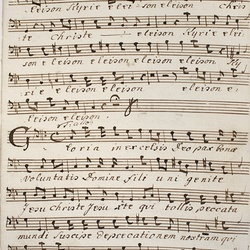 eleison Kyrie eleison eleison Chri
ste Christe eleison Kyrie elei
son eleison eleison eleison eleison Ky
rie eleison eleison eleison e
leison eleison.
Gloria in excelsis Deo pax bona
voluntatis Domine fili uni genite
Jesu Christe Jesu Xte qui tollis peccata
mundi suscipe deprecationem nostram qui